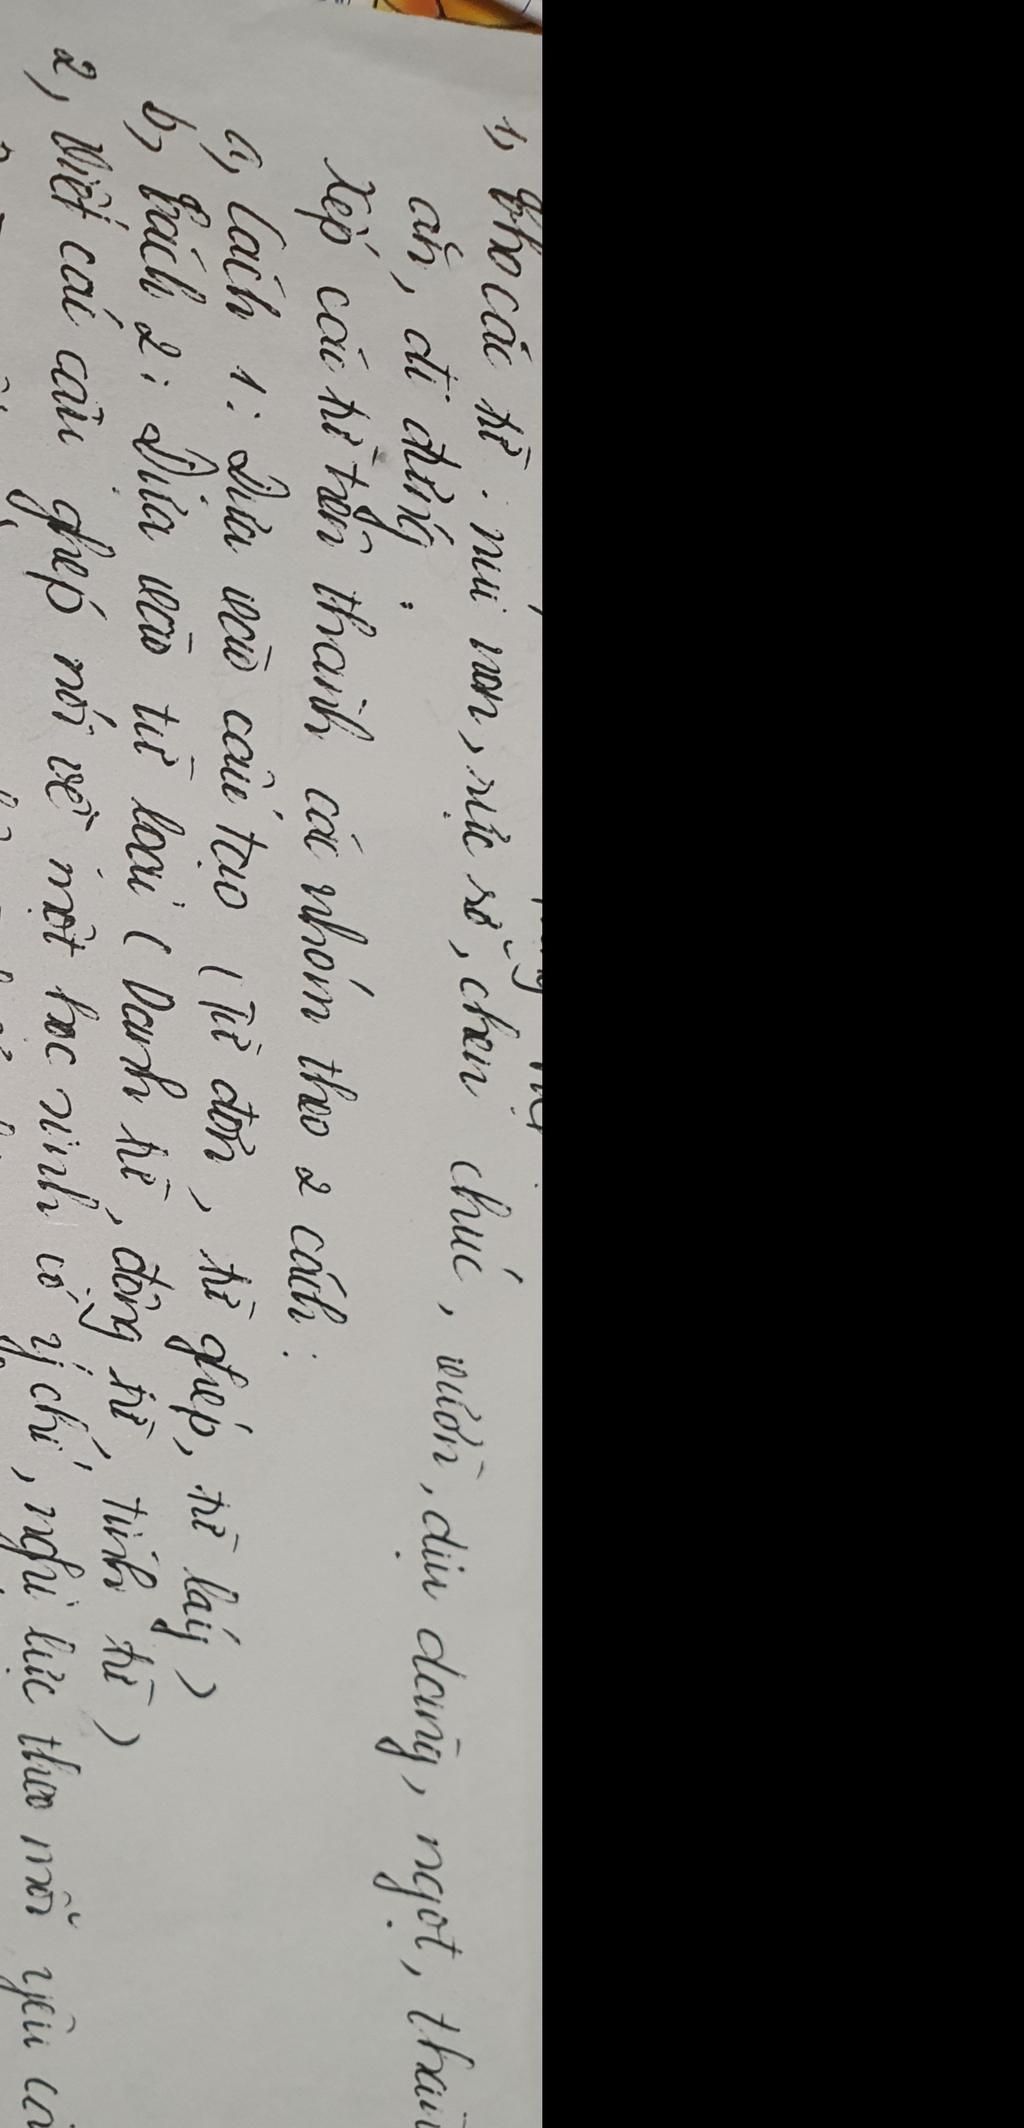 1, Cho các từ: núi non, rực rỡ, chen chúc, vườn, dịu dàng, ngọt, thành
ăn, đi đứng.
Xếp các từ trên thành các nhóm theo 2 cách:
a, Cách 1: Dựa vào cấu tạo (Từ đơn, từ ghép, từ láy)
b, Cách 2: Dựa vào từ loại (Danh từ, động từ, tính từ)
2, Viết các câu ghép nói về một học sinh có ý chí, nghị lực theo mỗi yêu